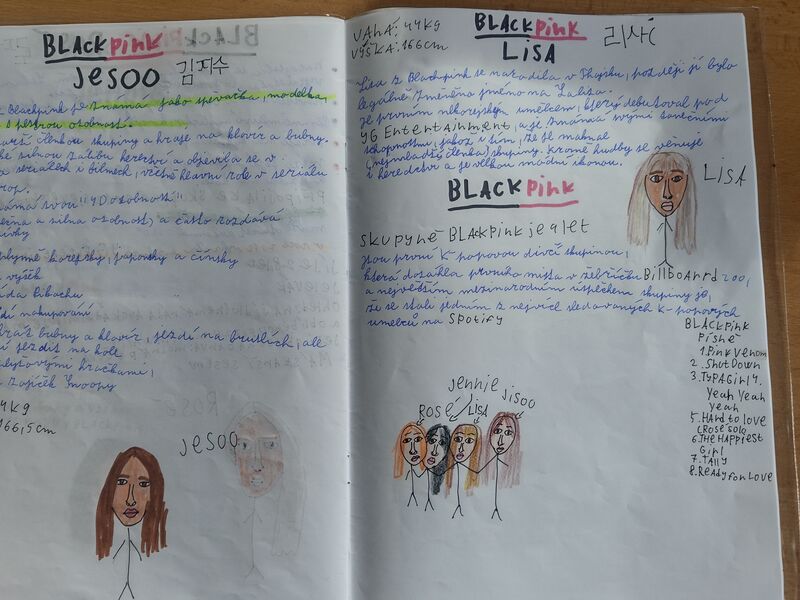 BLACKPINK
Jesoo 김지수
Blackpink je známá jako zpěvačka, modelka,
s pestrou osobností.
členkou skupiny a hraje na klavír a bubny.
silnou zálibu herectví a objevila se v
seriálech i filmech, včetně hlavní role v seriálu
svou "4D osobností"
a silná osobnost) a často rozdává
plynně korejsky, japonsky a čínsky
výšek
Pikachu
nakupování
bubny a klavír, jezdí na bruslích, ale
jezdit na kole
hračkami,
zajíček Snoopy
44kg
166,5cm
jesoo
Rosé
VÁHA: 44kg
VÝŠKA: 166cm
BLACKPINK
LISA
Lisa z Blackpink se narodila v Thajsku, později jí bylo
legálně změněno jméno na Lalisa.
Je prvním nekorejským umělcem, který debutoval pod
YG Entertainment, a je známá svými tanečními
schopnostmi, jakož i tím, že je maknae
(nejmladší členka) skupiny. Kromě hudby se věnuje
i herectví a je velkou módní ikonou.
LISA
BLACKPINK
skupyně BLACKPINK je 9 let
jsou první K-popovou dívčí skupinou,
která dosáhla prvního místa v žebříčku BillBoArrd 200,
a největším mezinárodním úspěchem skupiny je,
že se stali jedním z nejvíce sledovaných K-popových
umělců na Spotify
BLACKPINK
PíSNě
1. Pink Venom
2. ShutDown
3. TYPAGirl 4.
Yeah Yeah
Yeah
5. HArd to love
(Rosé solo
6. THe HAppiest
Girl
7. TAlly
8. ReAdy For LOVE
Jennie
ROSÉ LISA Jisoo